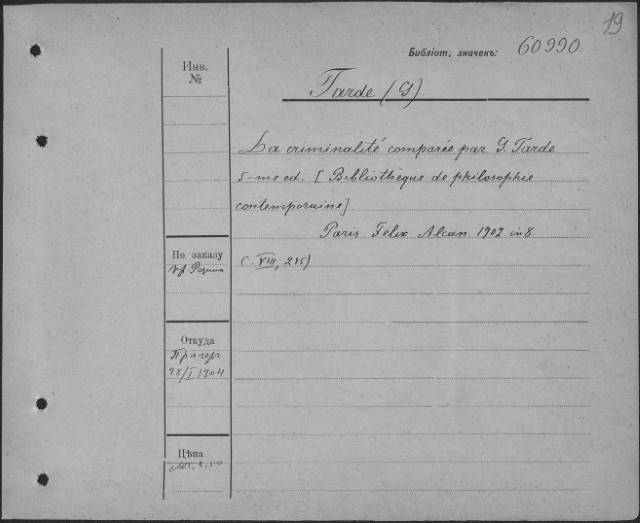 19
Библіот. значекъ: 60990.
Инв. №
Tarde (G).
La criminalité comparée par G. Tarde
5-me ed. [Bibliothèque de philosophie
contemporaine]
Paris Felix Alcan 1902 in 8.
По заказу
(С. VIII, 215)
Откуда
28/I 1904
Цѣна